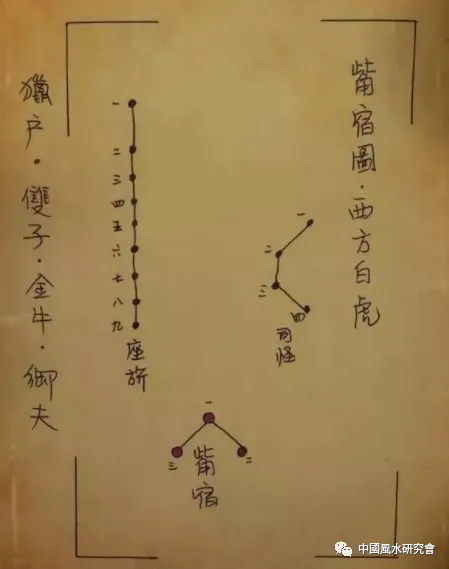 觜宿圖·西方白虎
一
二
三
四
司怪
一
二
三
四
五
六
七
八
九
座旂
一
二
三
觜宿
獵户·雙子·金牛·御夫
中國風水研究會